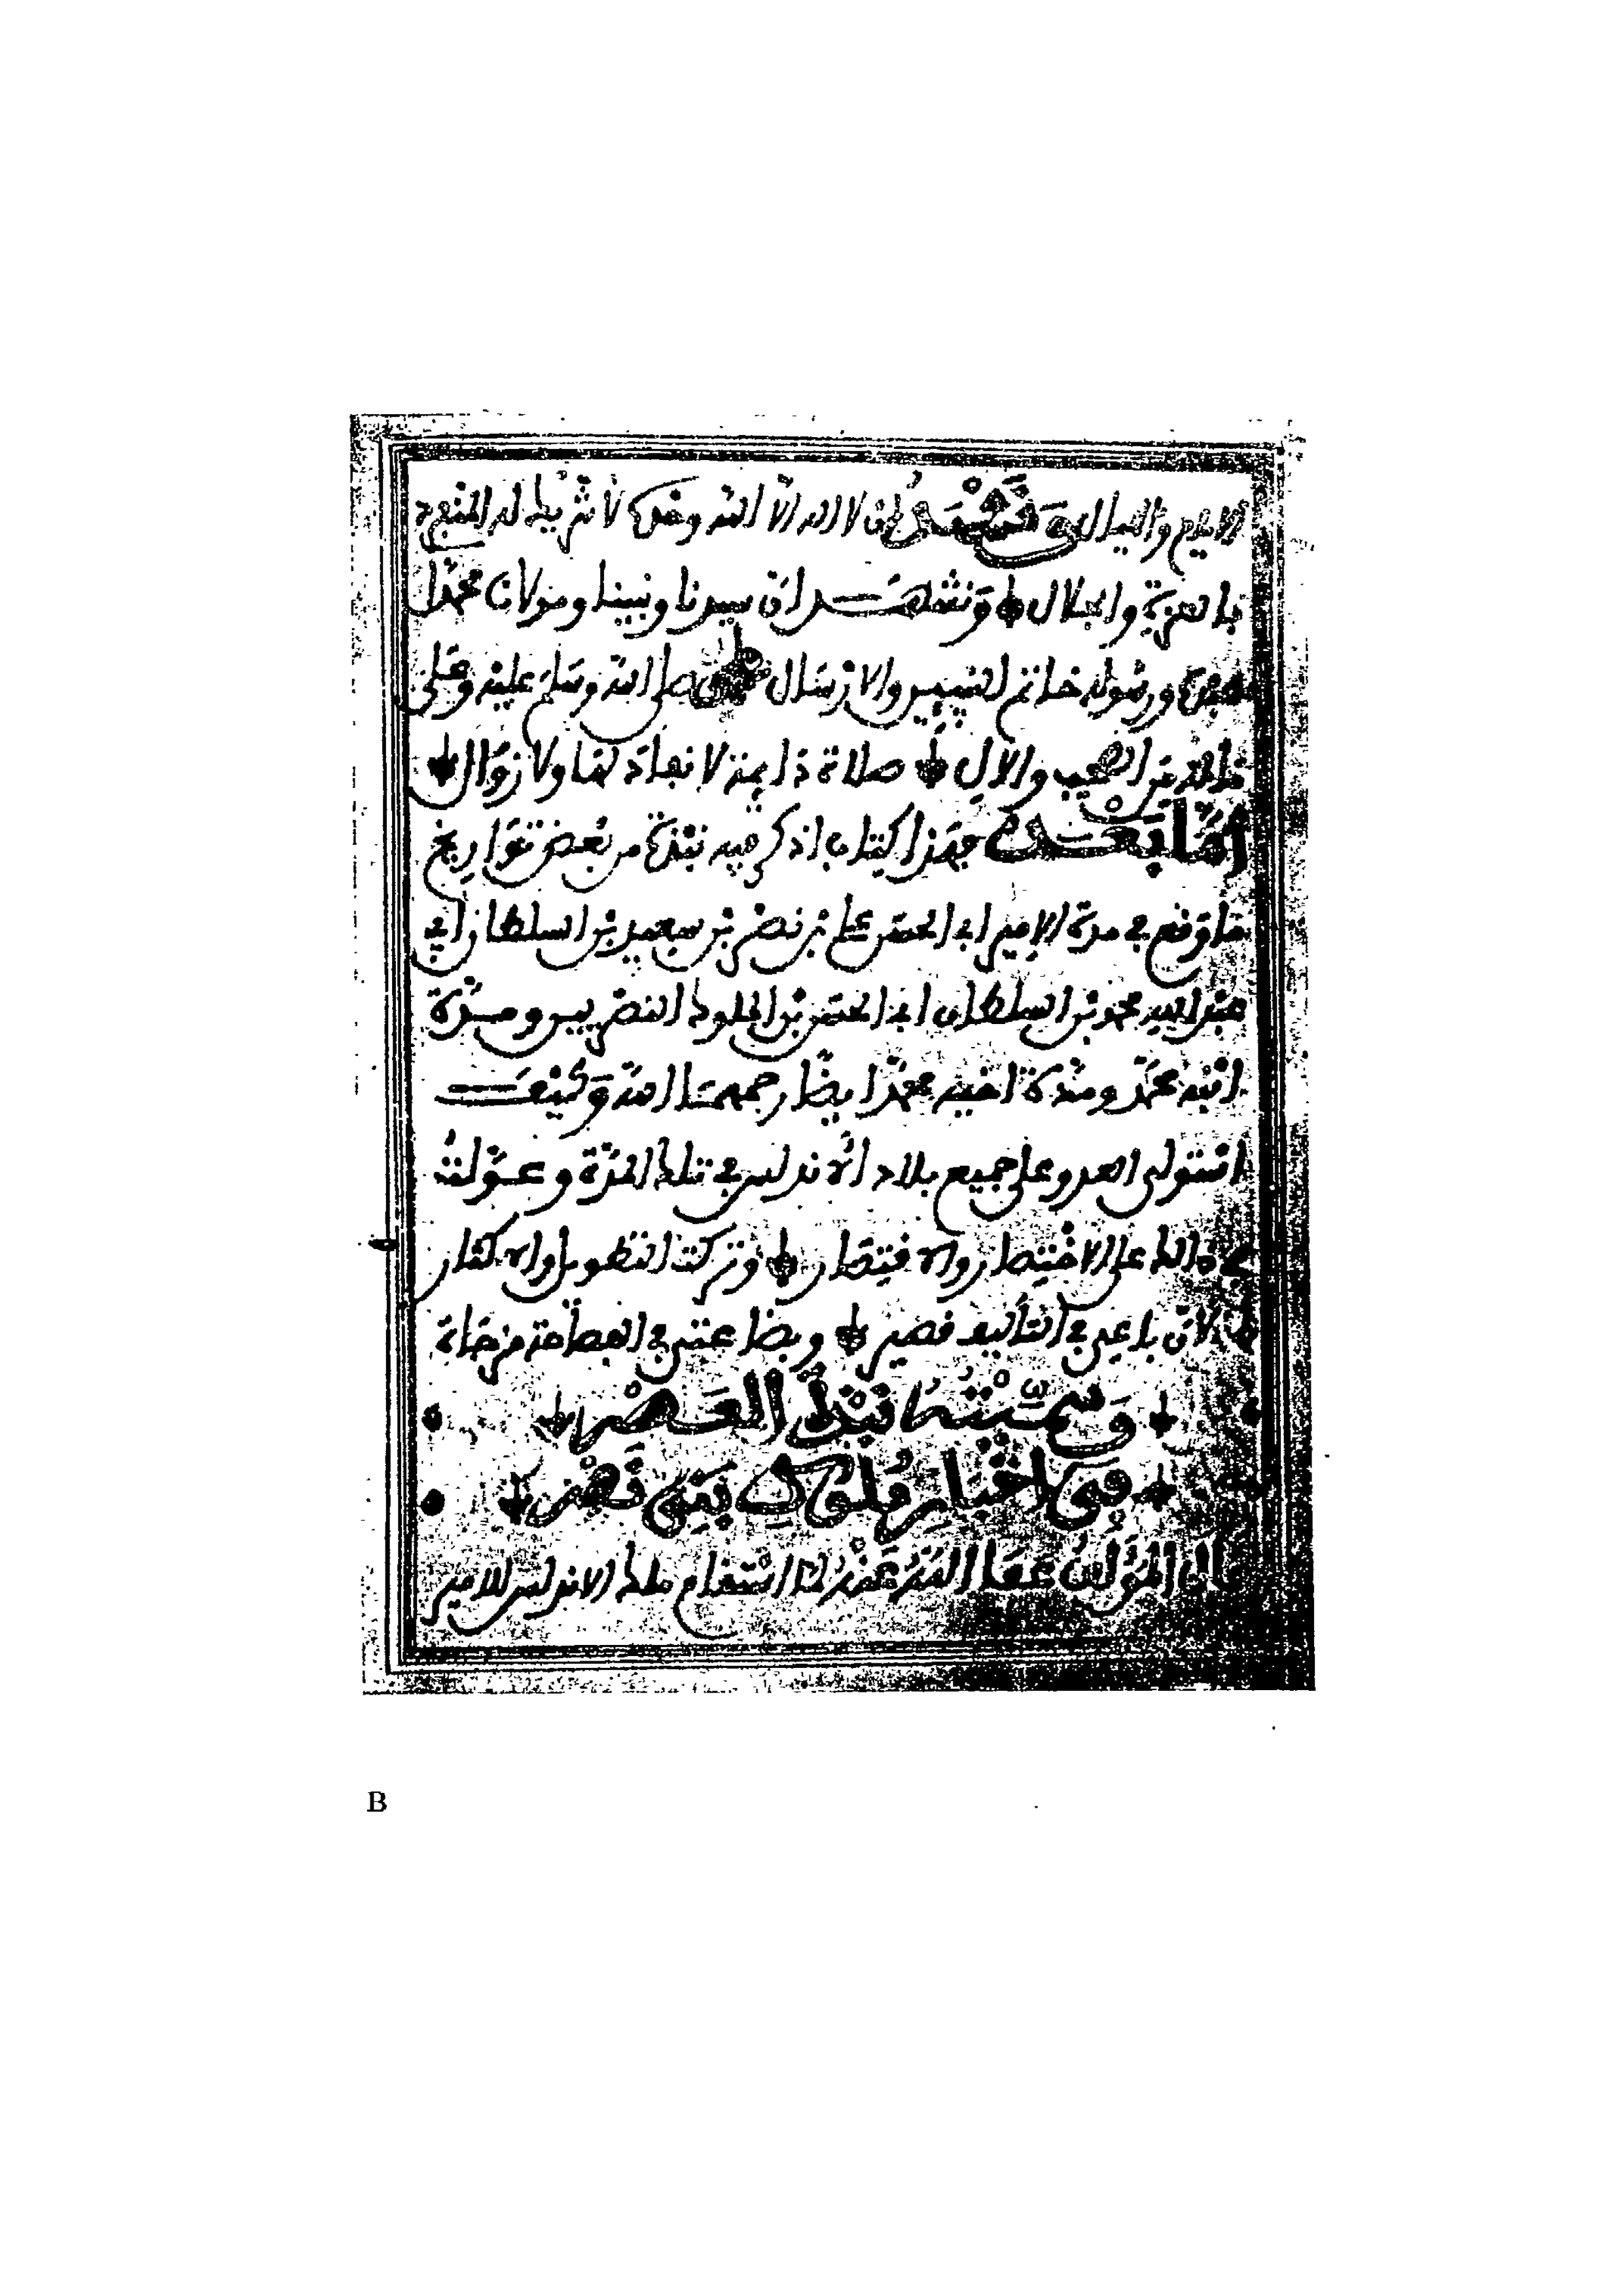 الايام والليال وَنَشْهَدُ أن لا اله الا الله وحده لا شريك له المنفرد
بالعزة والجلال وَنَشهَد ان سيدنا ونبينا ومولانا محمدا
عبده ورسوله خاتم النبيين والارسال صلى الله وسلم عليه وعلى
الصحب والال صلاة دايمة لا نفاد لها ولا زوال
أمَّا بَعْد فهذا كتاب اذكر فيه نبذة من بعض تواريخ
ما وقع في مدة الامير ابي الحسن علي بن نصر بن سعد بن السلطان ابي
عبد الله محمد بن السلطان ابي الحسن بن الملوك النصريين ومدة
ابنه محمد ومدة اخيه محمد ايضا رحمهما الله وكيف
استولى العدو على جميع بلاد الاندلس في تلك المدة وعولت
في ذالك على الاختصار والاقتصار وتركت التطويل والاكثار
لان باعي في التأليف قصير وبضاعتي في الفصاحة مزجاة
وَسَمَّيْتُهُ نَبْذَ العَصْر
فِي اخْبَارِ مُلُوكِ بَنِي نَصْر
قال المؤلف عفا الله عنه لما استقام ملك الاندلس للامير
B